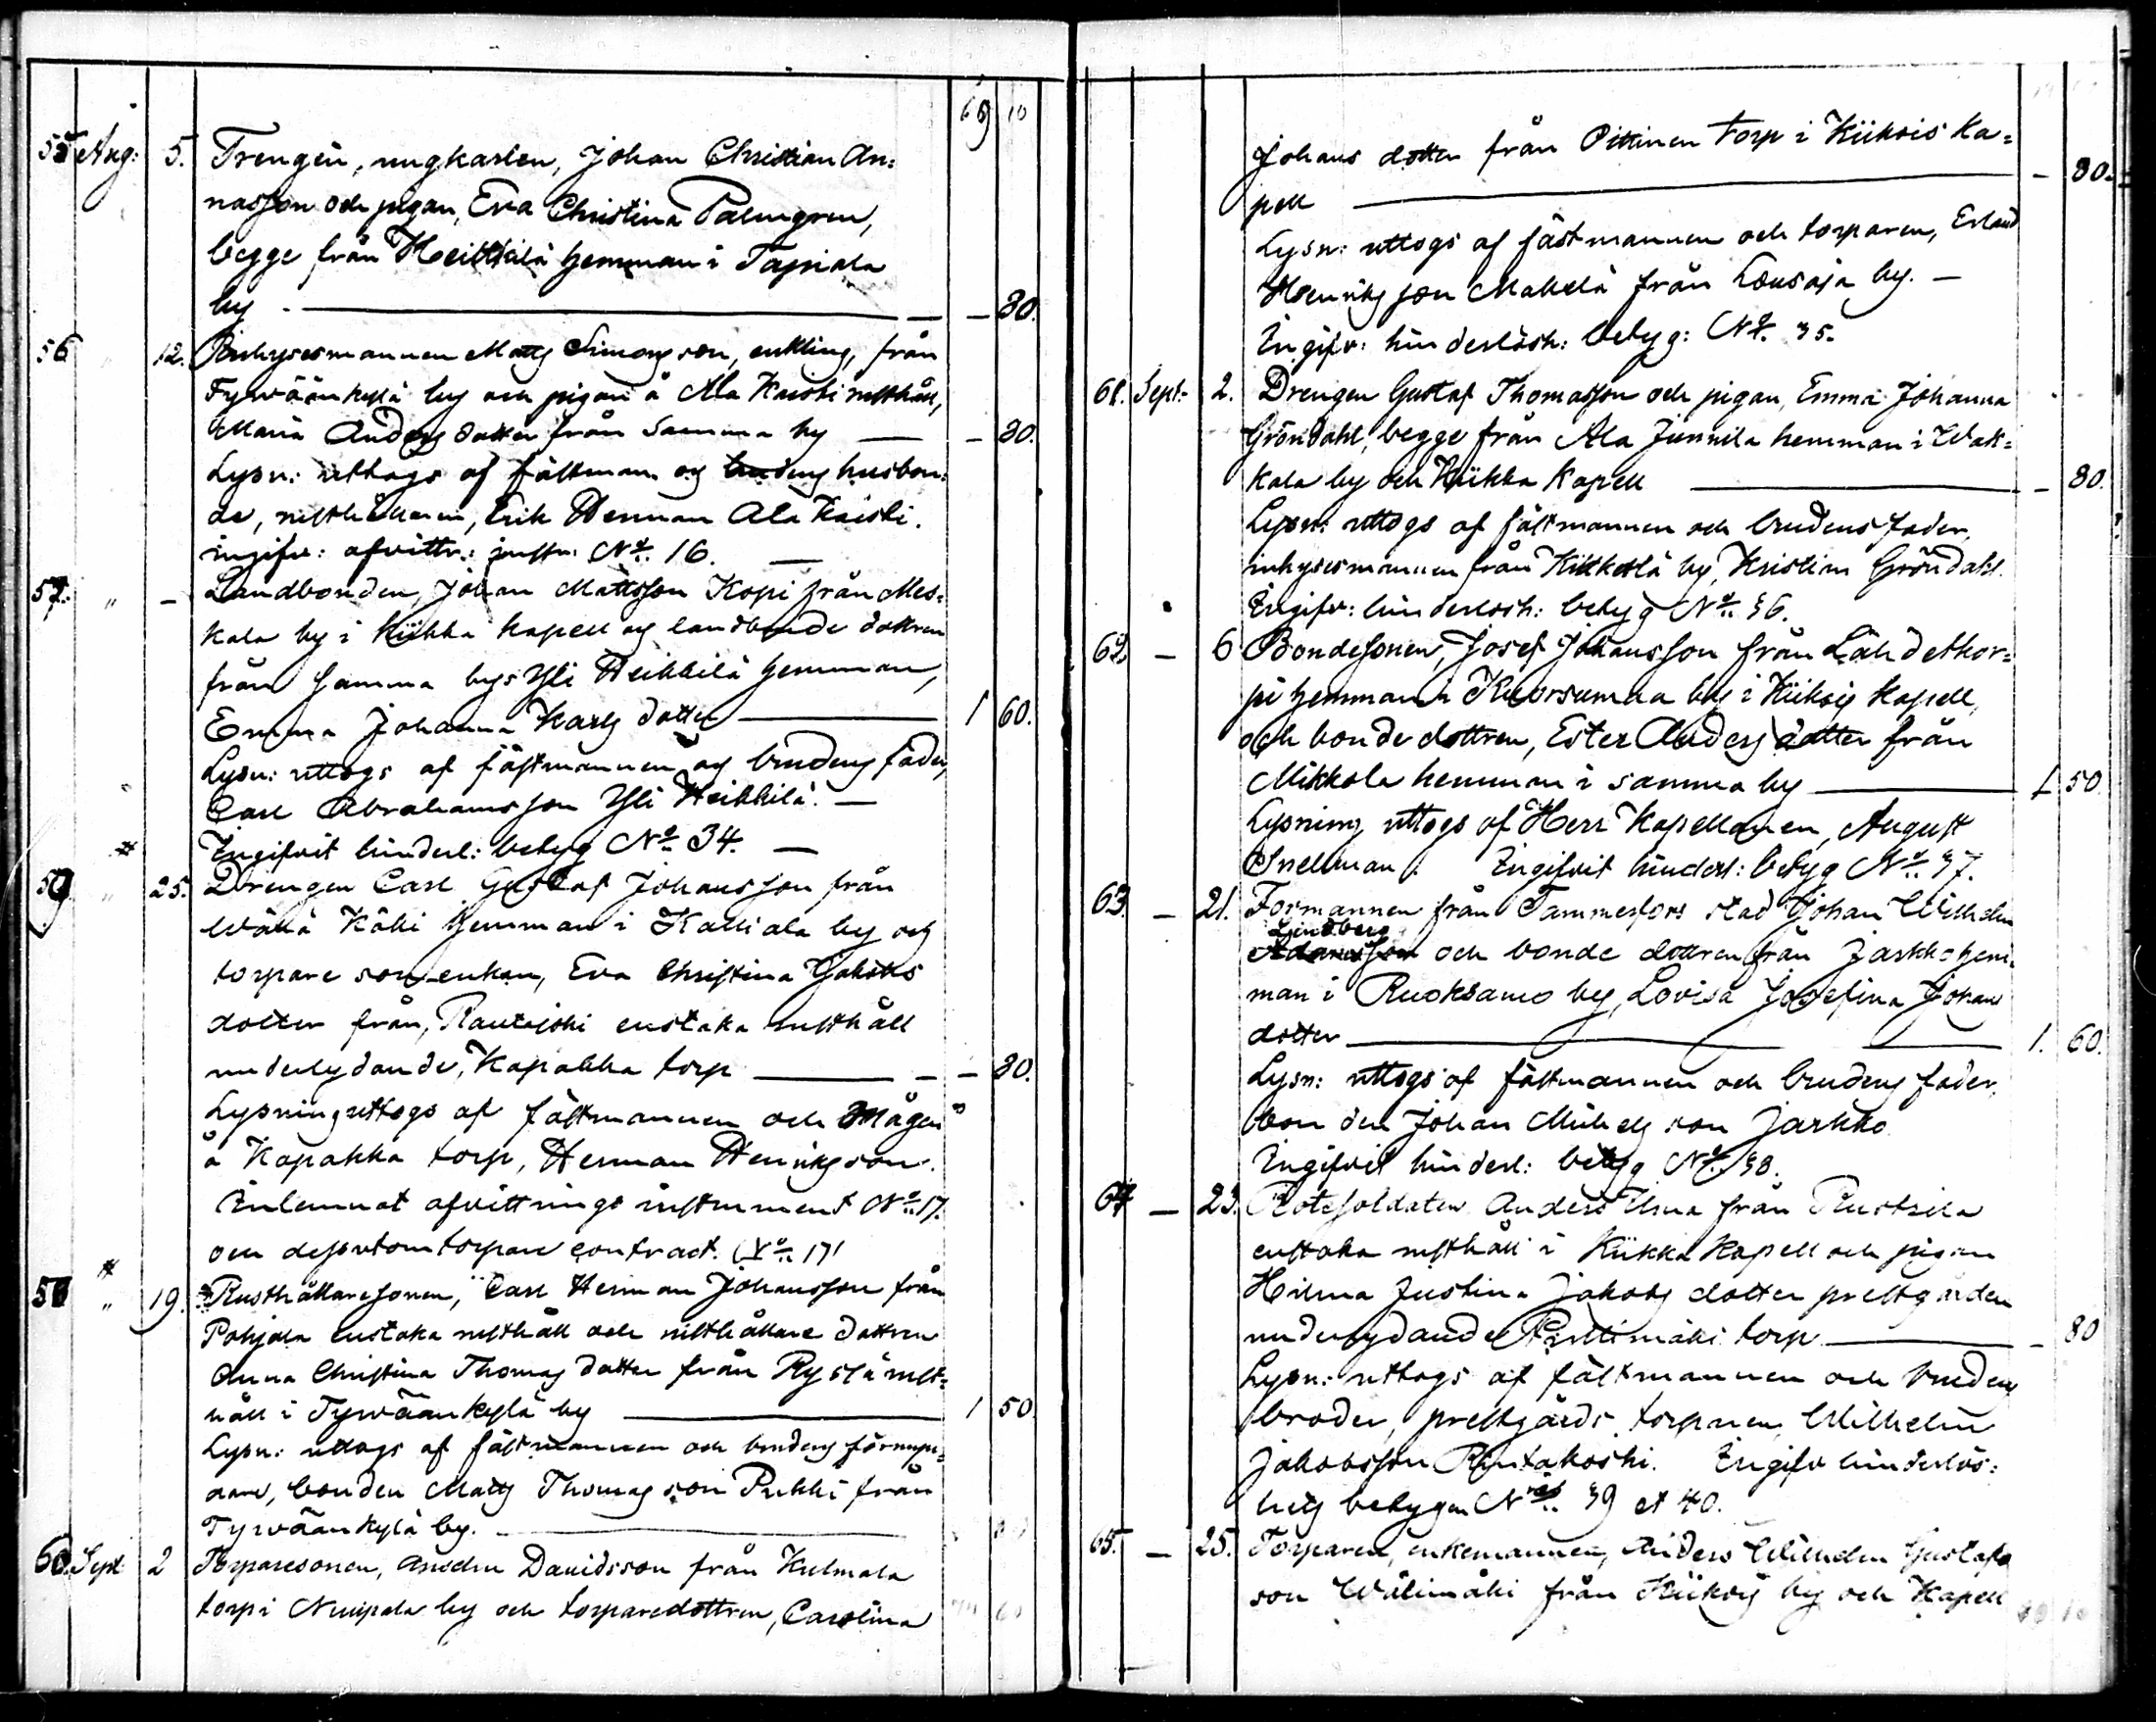 69 10
55 Aug: 5. Drengen, ungkarlen, Johan Christian An=
nasson och pigan, Eva Christina Palmgren,
begge från Heikkilä hemman i Tapiala
by — — 80.
56 " 12. Inhysesmannen Matts Simonsson, enkling, från
Tyrväänkylä by och pigan å Ala Kaiski rusthåll,
Maria Anders dotter från samma by — — 80.
Lysn: uttogs af fästman och husbon=
de, rusthållaren, Erik Herman Ala Kaiski.
ingifv: afvittr: instr: No. 16. —
57. " — Landbonden, Johan Mattsson Kopi från Mes=
kala by i Kiikka kapell och landbonde dottren
från samma bys Yli Heikkilä hemman,
Emma Johanna Karls dotter — 1 60.
Lysn: uttogs af fästmannen och brudens fader,
Carl Abrahamsson Yli Heikkilä. —
Ingifvit hinderl: betyg No. 34. —
59 " 25. Drengen Carl Gustaf Johansson från
Wähä Käki hemman i Kalliala by och
torpare sonenkan, Eva Christina Jakobs
dotter från, Rautajoki enstaka rusthåll
underlydande, Kapakka torp — — 80.
Lysning uttogs af fästmannen och Mågen
å Kapakka torp, Herman Henriksson.
Inlemnat afvittrings instrument No. 17.
och dessutom torpare contract. No. 17
58 " 19. Rusthållaresonen, Carl Herman Johansson från
Pohjala enstaka rusthåll och rusthållare dottren
Anna Christina Thomas dotter från Rystä rust=
håll i Tyrväänkylä by — 1 50.
Lysn: uttogs af fästmannen och brudens förmyn=
dare, bonden Matts Thomasson Pukki från
Tyrväänkylä by. —
60. Sept 2 Torparesonen, Davidsson från Kulmala
torp i Nuupala by och torparedottren, Carolina
Johans dotter från Pittinen torp i Kiikois Ka=
pell — — 80.
Lysn: uttogs af fästmannen och torparen, Erland
Henriksson Mäkelä från Lousaja by. —
Ingifv: hinderlösh: betyg: No. 35.
61. Sept: 2. Drengen Gustaf Thomasson och pigan, Emma Johanna
Gröndahl, begge från Ala Junnila hemman i Wak=
kala by och Kiikka Kapell — — 80.
Lysn: uttogs af fästmannen och brudens fader,
inhysesmannen från Kiikkala by, Kristian Gröndahl.
Ingifv: hinderlösh: betyg No. 36.
62 — 6 Bondesonen, Josef Johansson från Lähdekor=
pi hemman i Kuorsumaa by i Kiikois kapell,
och bondedottren, Ester Anders dotter från
Mikkola hemman i samma by — 1 50
Lysning uttogs af Herr Kapellanen, August
Snellman. Ingifvit hinderl: betyg No. 37.
63. — 21. Formannen från Tammerfors stad Johan Wilhelm
Lindberg
Adamsson och bonde dottren från Jaskko hem=
man i Ruoksamo by, Lovisa Josefina Johans
dotter — 1. 60.
Lysn: uttogs af fästmannen och brudens fader,
bonden Johan Michelsson Jaskko
Ingifvit hinderl: betyg No. 38.
64 — 23. Rotesoldaten Anders Urna från Ruotsila
enstaka rusthåll i Kiikka Kapell och pigan
Hilma Justina Jakobs dotter prestgården
underlydande torp — — 80
Lysn: uttogs af fästmannen och brudens
broder, prestgårds torparen, Wilhelm
Jakobsson Rintakoski. Ingifv hinderlös:
hets betygen Nris 39 et 40.
65. — 25. Torparen, enkemannen, Anders Wilhelm Gustafs
son Wälimäki från Kiikois by och Kapell